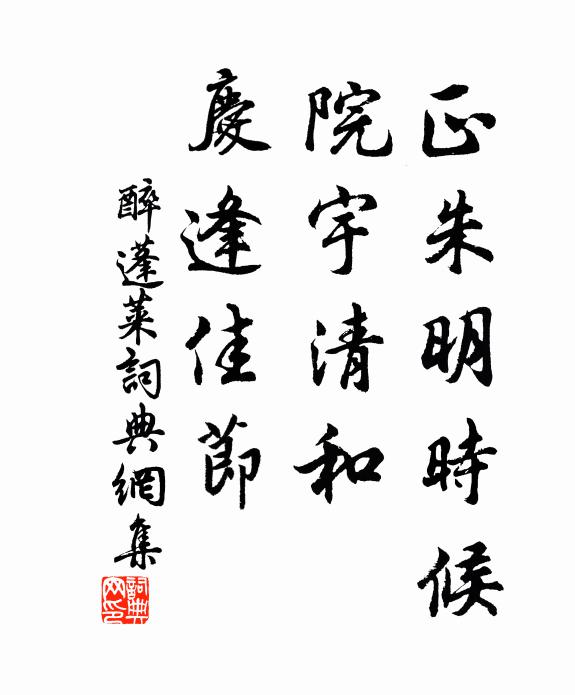 正朱明時候
院宇清和
慶逢佳節
醉蓬萊詞典網集
詞典
网印